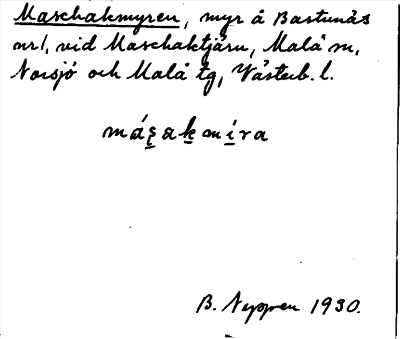 Maschakmyren, myr å Bastunäs
nr1, vid Maschaktjärn, Malå sn,
Norsjö och Malå tg, Västerb. l.
máʂakmíra
B. Neppren 1930.